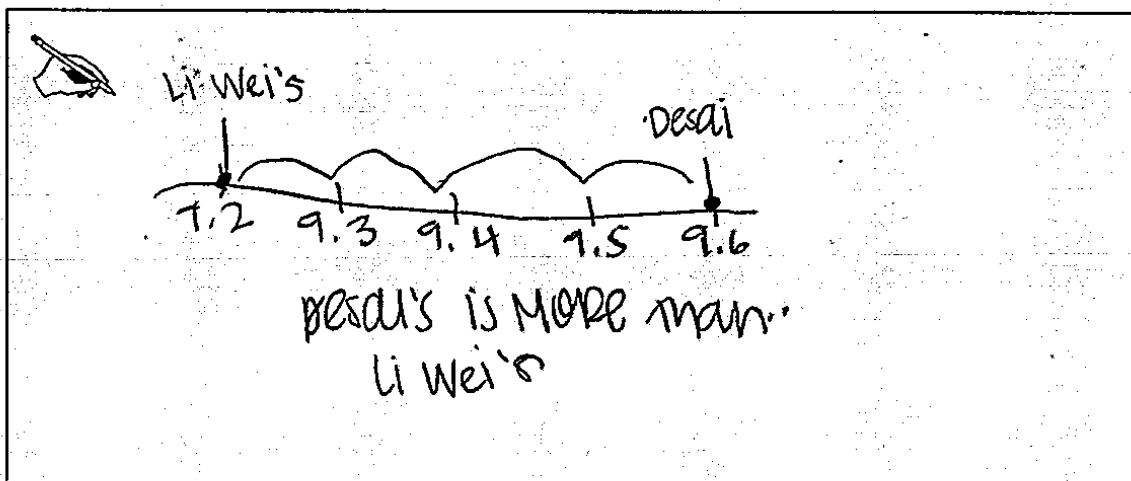 Li Wei's
Desai
9.2 9.3 9.4 9.5 9.6
Desai's is MORE than
Li Wei's